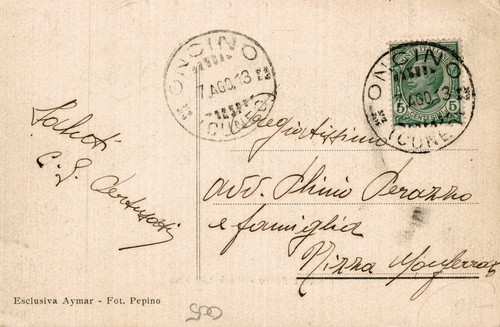 ONCINO
7 AGO. 13
(CUNEO)
ONCINO
AGO. 13
(CUNEO)
5 5
CENTESIMI
Saluti
Pregiatissimo
avv. Plinio Perazzo
e famiglia
Nizza Monferrato
Esclusiva Aymar - Fot. Pepino
500